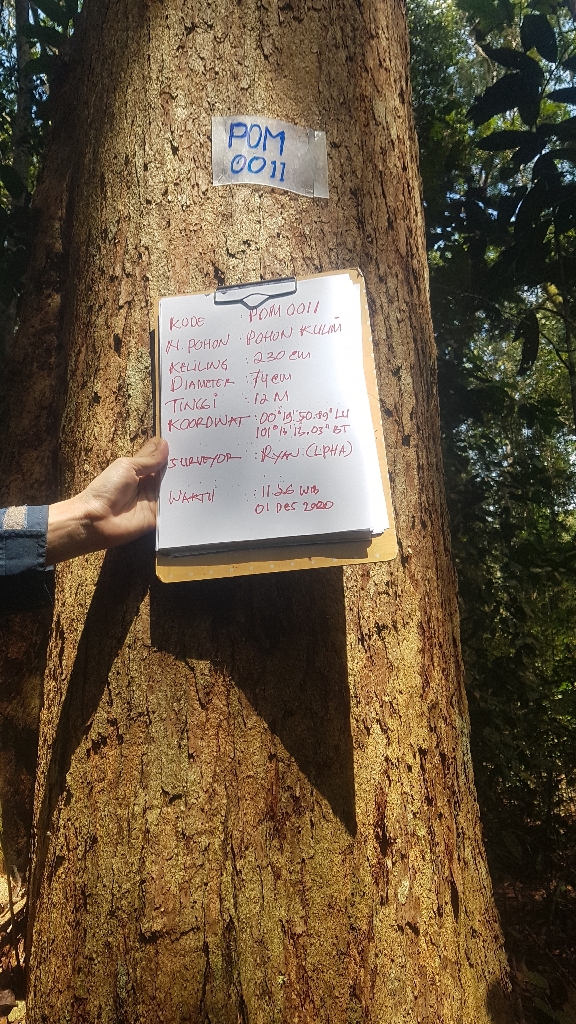 POM
0011
KODE : POM 0011
N. POHON : POHON KULIM
KELILING : 230 cm
DIAMETER : 74 cm
TINGGI : 12 M
KOORDINAT : 00° 19' 50.89" LU
101° 13' 13.03" BT
SURVEYOR : RYAN (LPHA)
WAKTU : 11.26 WIB
01 DES 2020